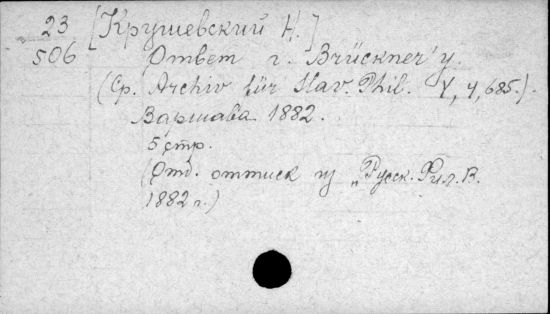 23 [Крушевский Н.]
506 Ответ г. Brückner'у.
(Ср. Archiv für Slav. Phil. V, 4, 685.)
Варшава 1882.
5 стр.
(Отд. оттиск из „Русск. Фил. В.
1882 г.)